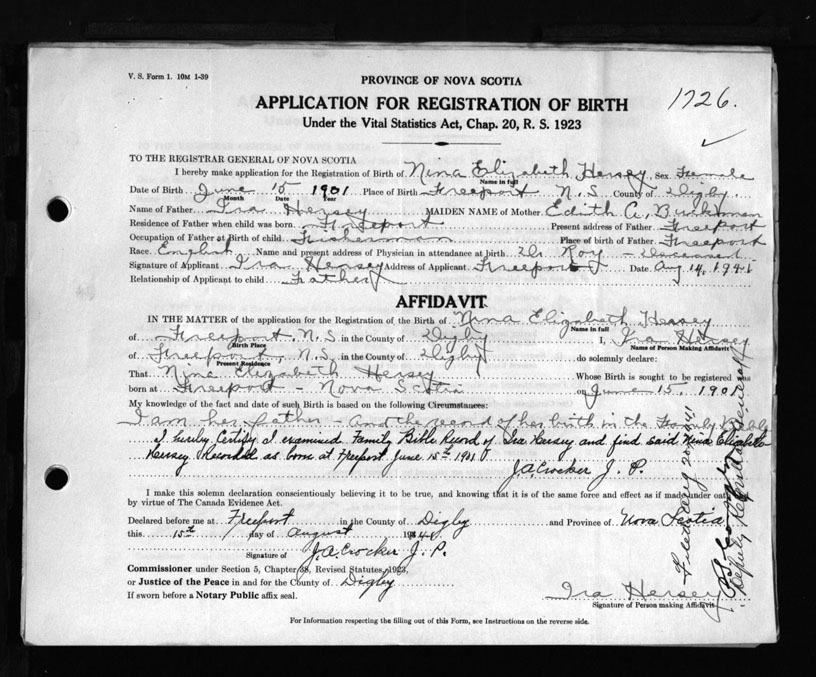 V. S. Form 1. 10M 1-39
PROVINCE OF NOVA SCOTIA
APPLICATION FOR REGISTRATION OF BIRTH
1726.
Under the Vital Statistics Act, Chap. 20, R. S. 1923
TO THE REGISTRAR GENERAL OF NOVA SCOTIA
I hereby make application for the Registration of Birth of Nina Elizabeth Hersey, Sex Female
Name in full
Date of Birth June 15 1901 Place of Birth Freeport N.S. County of Digby.
Month Date Year
Name of Father Ira Hersey MAIDEN NAME of Mother Edith A.
Residence of Father when child was born Freeport Present address of Father Freeport
Occupation of Father at Birth of child Fisherman Place of birth of Father Freeport
Race English Name and present address of Physician in attendance at birth Dr. Roy - Deceased
Signature of Applicant Ira Hersey Address of Applicant Freeport Date Aug 14, 1941
Relationship of Applicant to child Father
AFFIDAVIT
IN THE MATTER of the application for the Registration of the Birth of Nina Elizabeth Hersey
Name in full
of Freeport, N.S. in the County of Digby I, Ira Hersey
Birth Place Name of Person Making Affidavit
of Freeport, N.S. in the County of Digby do solemnly declare:
Present Residence
That Nina Elizabeth Hersey Whose Birth is sought to be registered was
born at Freeport - Nova Scotia on June 15, 1901
My knowledge of the fact and date of such Birth is based on the following Circumstances:
I am her father - and the record of her birth in the Family Bible
I hereby Certify I examined Family Bible Record of Ira Hersey and find said Nina Elizabeth
Hersey Recorded as born at Freeport June 15th 1901
J.A. Crocker J. P.
I make this solemn declaration conscientiously believing it to be true, and knowing that it is of the same force and effect as if made under oath
by virtue of The Canada Evidence Act.
Declared before me at Freeport in the County of Digby and Province of Nova Scotia
this 15th day of August 1941
Signature of J.A. Crocker J.P.
Commissioner under Section 5, Chapter 38, Revised Statutes, 1923,
or Justice of the Peace in and for the County of Digby
If sworn before a Notary Public affix seal.
Ira Hersey
Signature of Person making Affidavit
For Information respecting the filling out of this Form, see Instructions on the reverse side.
Deputy Registrar General